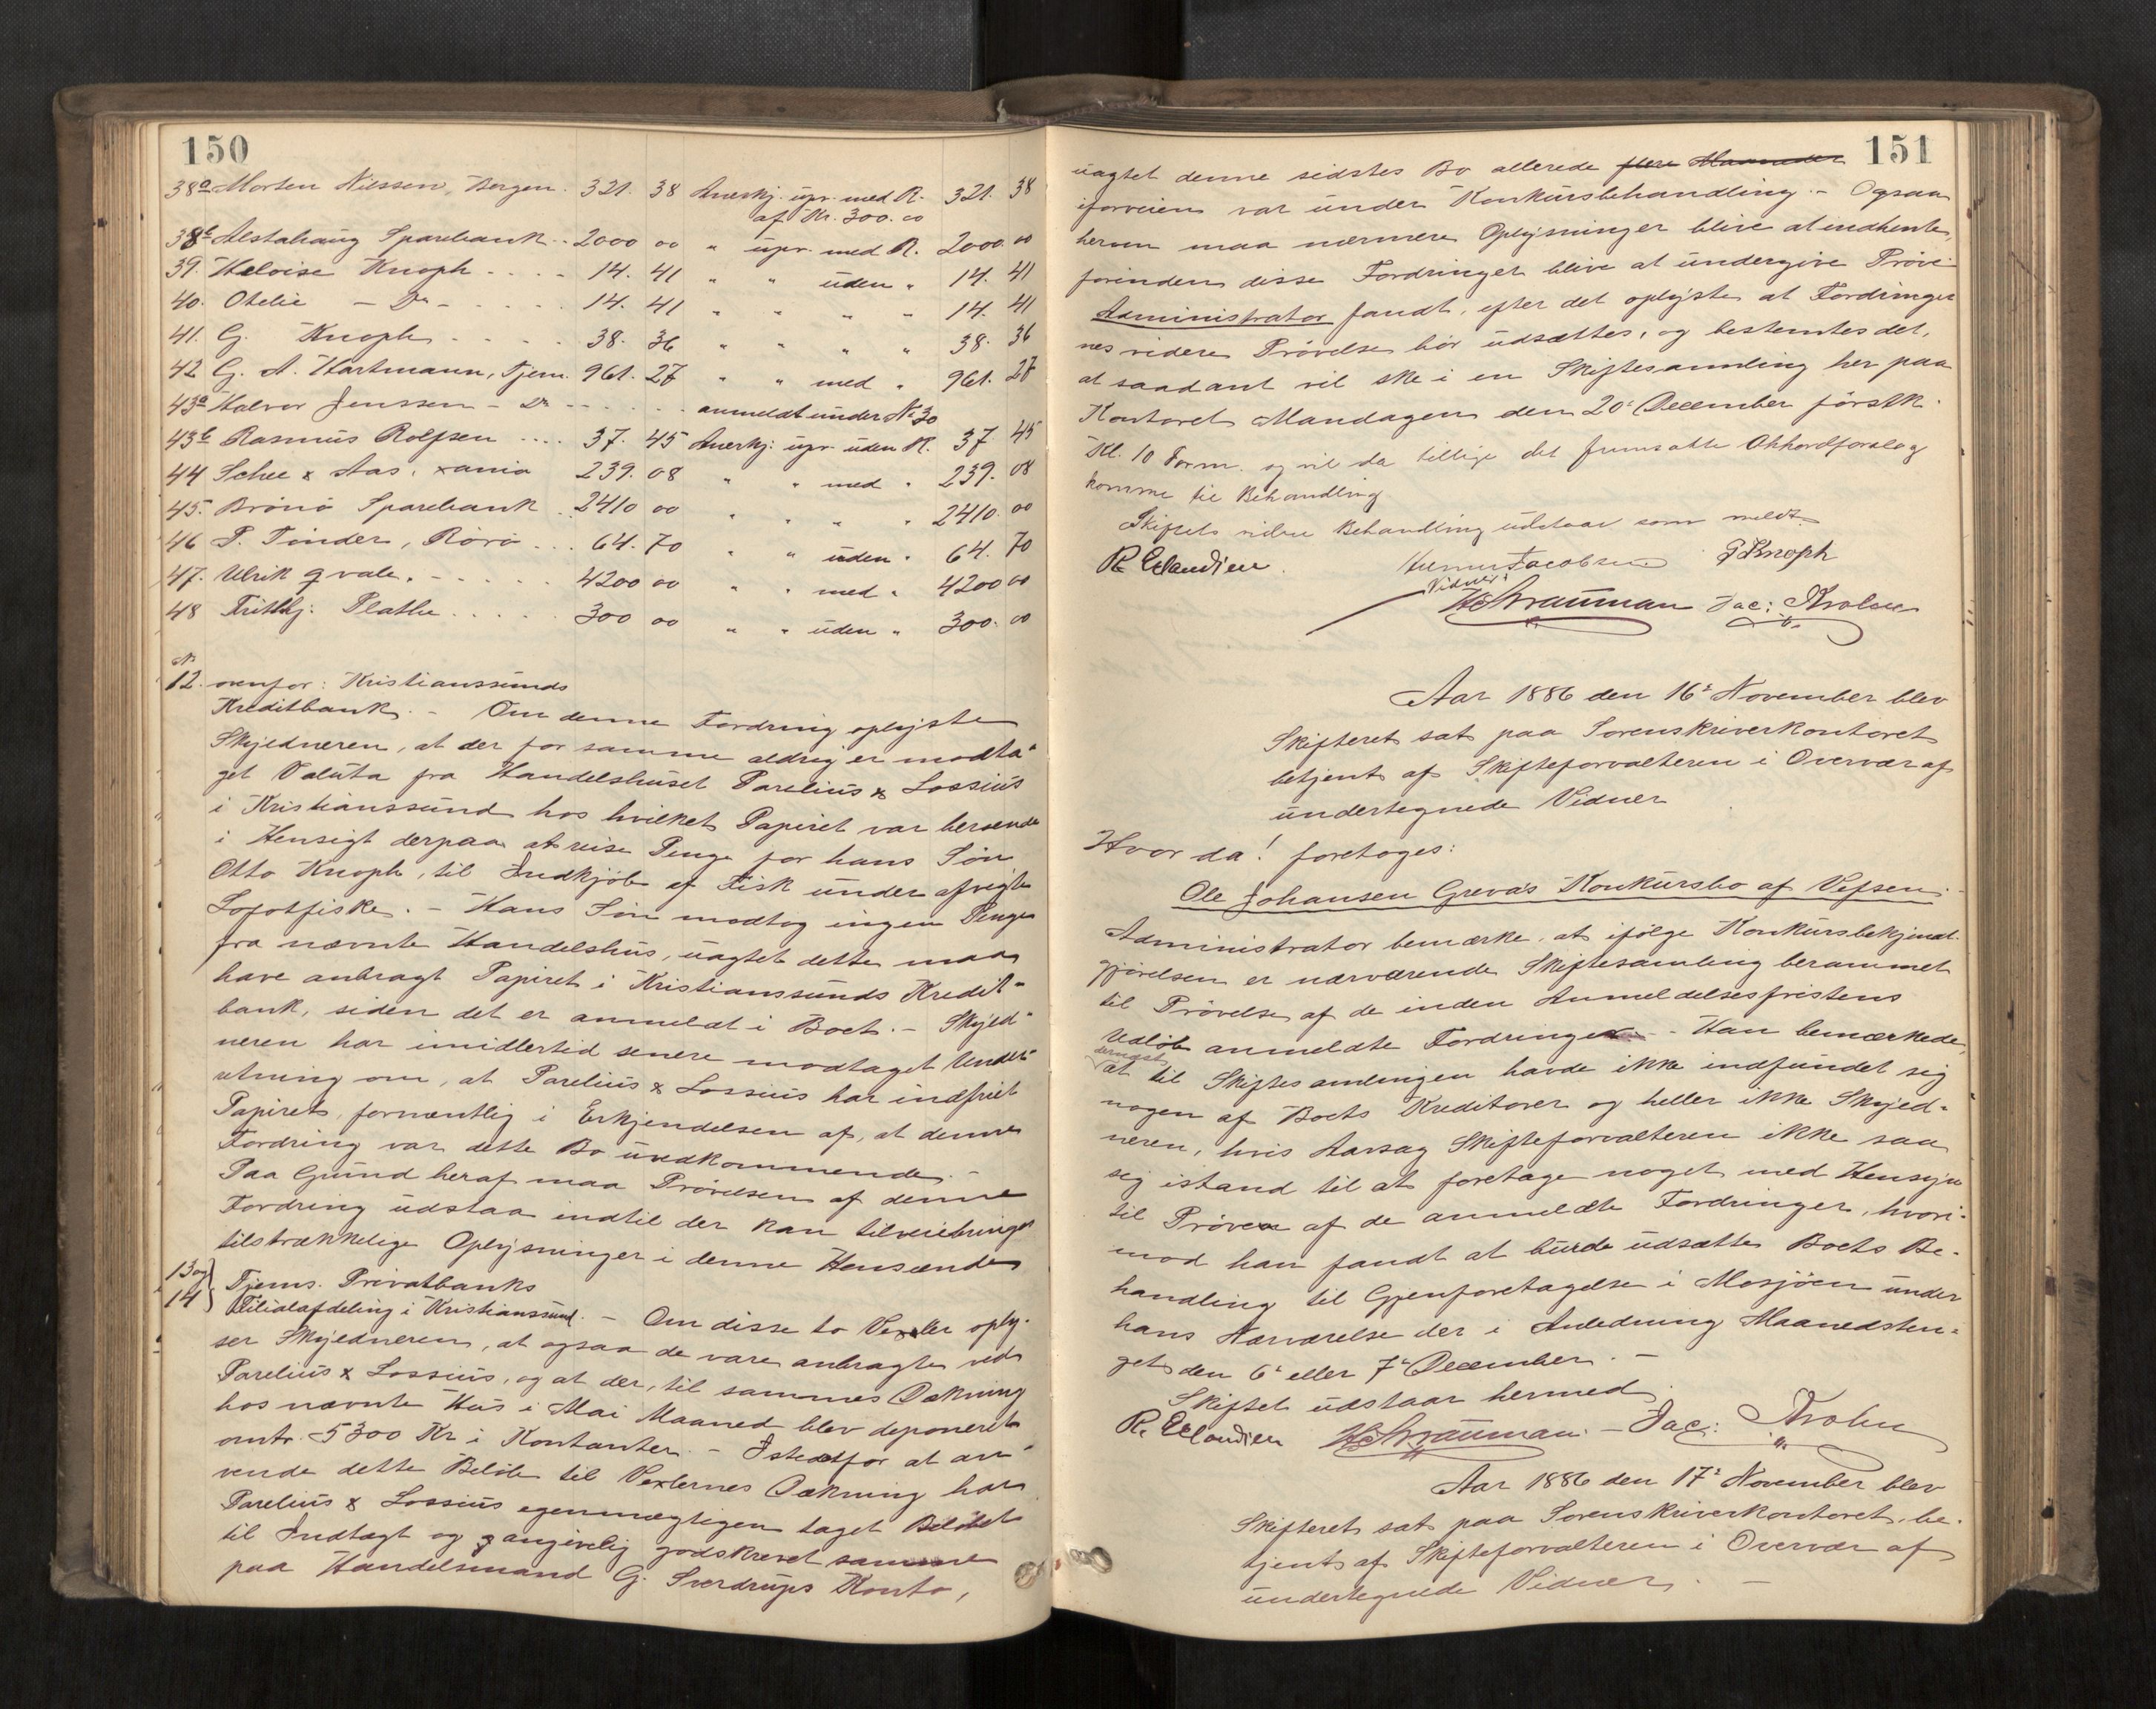 150
38a Morten Nilssen, Bergen. 321. 38 Anerkj. upr. med R. 321. 38
af Kr. 300.00
38b Alstahaug Sparebank . . 2000 00 " upr. med R. 2000. 00
39. Heloise Knoph - - - - 14. 41 " " uden " 14. 41
40. Otelie - Do - - - - 14. 41 " " " " 14. 41
41. G. Knoph - - - - 38. 36 " " " " 38. 36
42 G. A. Hartmann, Tjem. 961. 27 " " med " 961. 27
43a Halvor Jenssen - Do - - - - - - anmeldt under No 30
43b Rasmus Rolfsen .... 37. 45 Anerkj: upr. uden R. 37 45
44 Schee & Aas, xania 239. 08 " " med " 239. 08
45. Brönö Sparebank . 2410 00 " " " " 2410. 00
46 P. Tönder, Rörö . . . 64. 70 " " uden " 64. 70
47. Ulrik Qvale. - - - - - 4200 00 " " med " 4200 00
48 Frithj: Plathe . . . . . 300 00 " " uden " 300. 00
No
12. ovenfor: Kristianssunds
Kreditbank. - Om denne Fordring oplyste
Skyldneren, at der for samme aldrig er modta-
get Valuta fra Handelshuset Parelius & Lossius
i Kristianssund hos hvilket Papiret var beroende
i Hensigt derpaa at reise Penge for hans Sön
Otto Knoph, til Indkjöb af Fisk under afvigte
Lofotfiske. - Hans Sön modtog ingen Penge
fra nævnte Handelshus, uagtet dette maa
have anbragt Papiret i Kristianssunds Kredit-
bank, siden det er anmeldt i Boet. - Skyld-
neren har imidlertid senere modtaget Under-
retning om, at Parelius & Lossius har indfriet
Papiret, formentlig i Erkjendelsen af, at denne
Fordring var dette Bo uvedkommende. -
Paa Grund heraf maa Prövelsen af denne
Fordring udstaa indtil der kan tilveiebringes
tilstrækkelige Oplysninger i denne Henseende
13 og
14 } Tjems. Privatbanks
Filialafdeling i Kristianssund. - Om disse to Vexler oply-
ser Skyldneren, at ogsaa de vare anbragte ved
Parelius & Lossius, og at der, til sammes Dækning
hos nævnte Hus i Mai Maaned blev deponeret
omtr. 5300 Kr i Kontanter. - Istedetfor at an-
vende dette Belöb til Vexlernes Dækning har
Parelius & Lossius egenmægtigen taget Belöbet
til Indtægt og angivelig godskrevet samme
paa Handelsmand G. Sverdrups Konto,
151
uagtet denne sidstes Bo allerede flere Maaneder
iforveien var under Konkursbehandling. - Ogsaa
herom maa nærmere Oplysninger blive at indhente,
forinden disse Fordringer blive at undergive Pröve.
Administrator fandt, efter det oplyste at Fordringer
nes videre Prövelse bör udsættes, og bestemtes det,
at saadant vil ske i en Skiftesamling her paa
Kontoret Mandagen den 20de December förstk.
Kl. 10 Form. og vil da tillige det fremsatte Akkordforslag
komme til Behandling
Skiftets videre Behandling udstaar som meldt.
R. Elandien. Jacobsen G Knoph
Vidner:
Jac:
Aar 1886 den 16de November blev
Skifteret sat paa Sorenskriverkontoret
betjent af Skifteforvalteren i Overvær af
undertegnede Vidner
Hvor da! foretoges:
Ole Johansen Grevas Konkursbo af Vefsen.
Administrator bemærke, at ifölge Konkursbekjendt-
gjörelsen er nærværende Skiftesamling berammet
til Prövelse af de inden Anmeldelsesfristens
Udlöb anmeldte Fordringer. - Han bemærkede,
dernæst
at til Skiftesamlingen havde ikke indfundet sig
nogen af Boets Kreditorer og heller ikke Skyld-
neren, hvis Aarsag Skifteforvalteren ikke saa
sig istand til at foretage noget med Hensyn
til Pröven af de anmeldte Fordringer, hvori-
mod han fandt at burde udsætte Boets Be-
handling til Gjenforetagelse i Mosjöen under
hans Nærværelse der i Anledning Maanedsthin-
get den 6te eller 7de December. -
Skiftet udstaar hermed.
R. Elandien - Jac:
Aar 1886 den 17de November blev
Skifteret sat paa Sorenskriverkontoret, be-
tjent af Skifteforvalteren i Overvær af
undertegnede Vidner. -